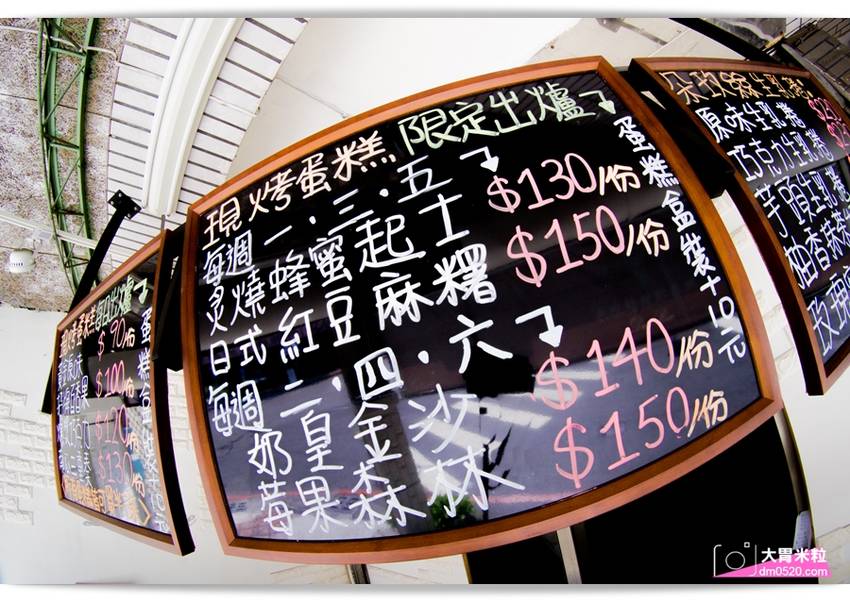 現烤蛋糕 限定出爐
每週一.三.五
炙燒蜂蜜起士 $130/份
日式紅豆麻糬 $150/份
每週二.四.六
奶皇金沙 $140/份
莓果森林 $150/份
蛋糕盒裝+10元
現烤蛋糕每日出爐
$90/份
$100
$120
$130
原味生乳捲
巧克力生乳捲
芋頭生乳捲
大胃米粒
dm0520.com